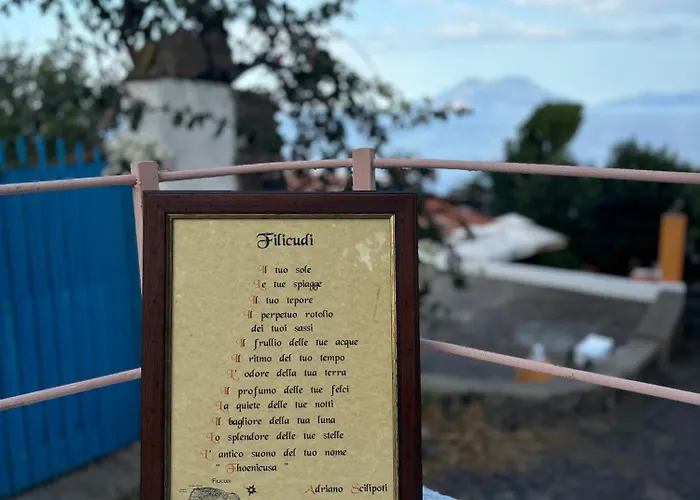 Filicudi
Il tuo sole
Le tue spiagge
Il tuo tepore
Il perpetuo rotolio
dei tuoi sassi
Il frullio delle tue acque
Il ritmo del tuo tempo
L' odore della tua terra
Il profumo delle tue felci
La quiete delle tue notti
Il bagliore della tua luna
Lo splendore delle tue stelle
L' antico suono del tuo nome
" Fhoenicusa "
FILICUDI
Adriano Scilipoti